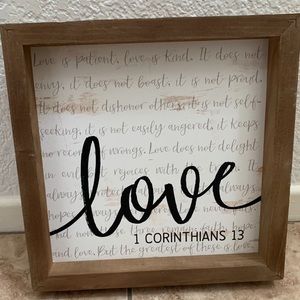 Love is patient, love is kind. It does not
envy, it does not boast, it is not proud.
It does not dishonor others, it is not self-
seeking, it is not easily angered, it keeps
no record of wrongs. Love does not delight
in evil but rejoices with the truth. It
always protects, always
hope
love
1 CORINTHIANS 13
and love. But the greatest of these is love.